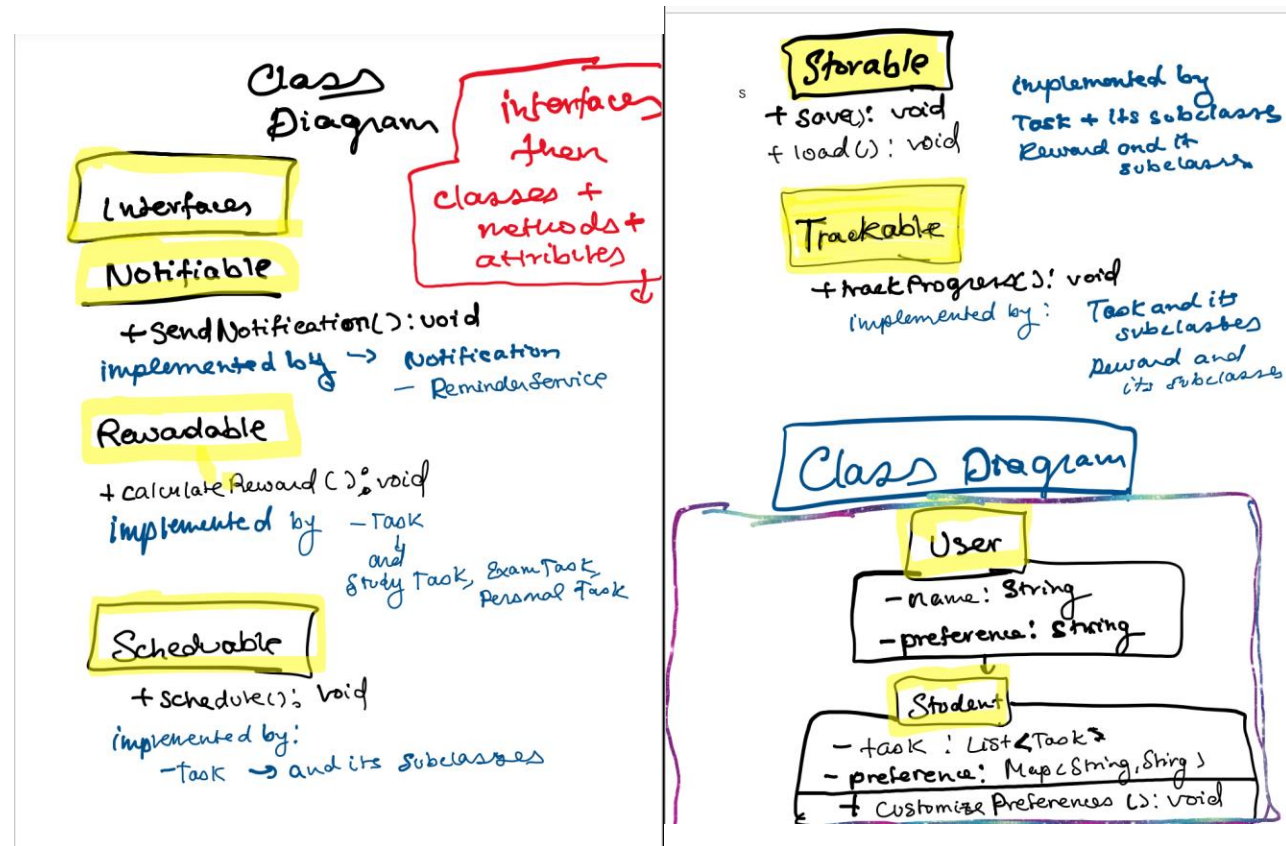 Class
Diagram
interfaces
then
classes +
methods +
attributes
Interfaces
Notifiable
+ SendNotification(): void
implemented by → Notification
- ReminderService
Rewadable
+ calculateReward(): void
implemented by - Task
and
Study Task, Exam Task,
Personal Task
Scheduable
+ schedule(): void
implemented by:
- Task → and its subclasses
s
Storable
+ save(): void
+ load(): void
implemented by
Task + its subclasses
Reward and it
subclasses
Trackable
+ trackProgress(): void
implemented by:
Task and its
subclasses
Reward and
its subclasses
Class Diagram
User
- name: String
- preference: String
Student
- task : List<Task>
- preference: Map<String, String>
+ Customize Preferences (): void